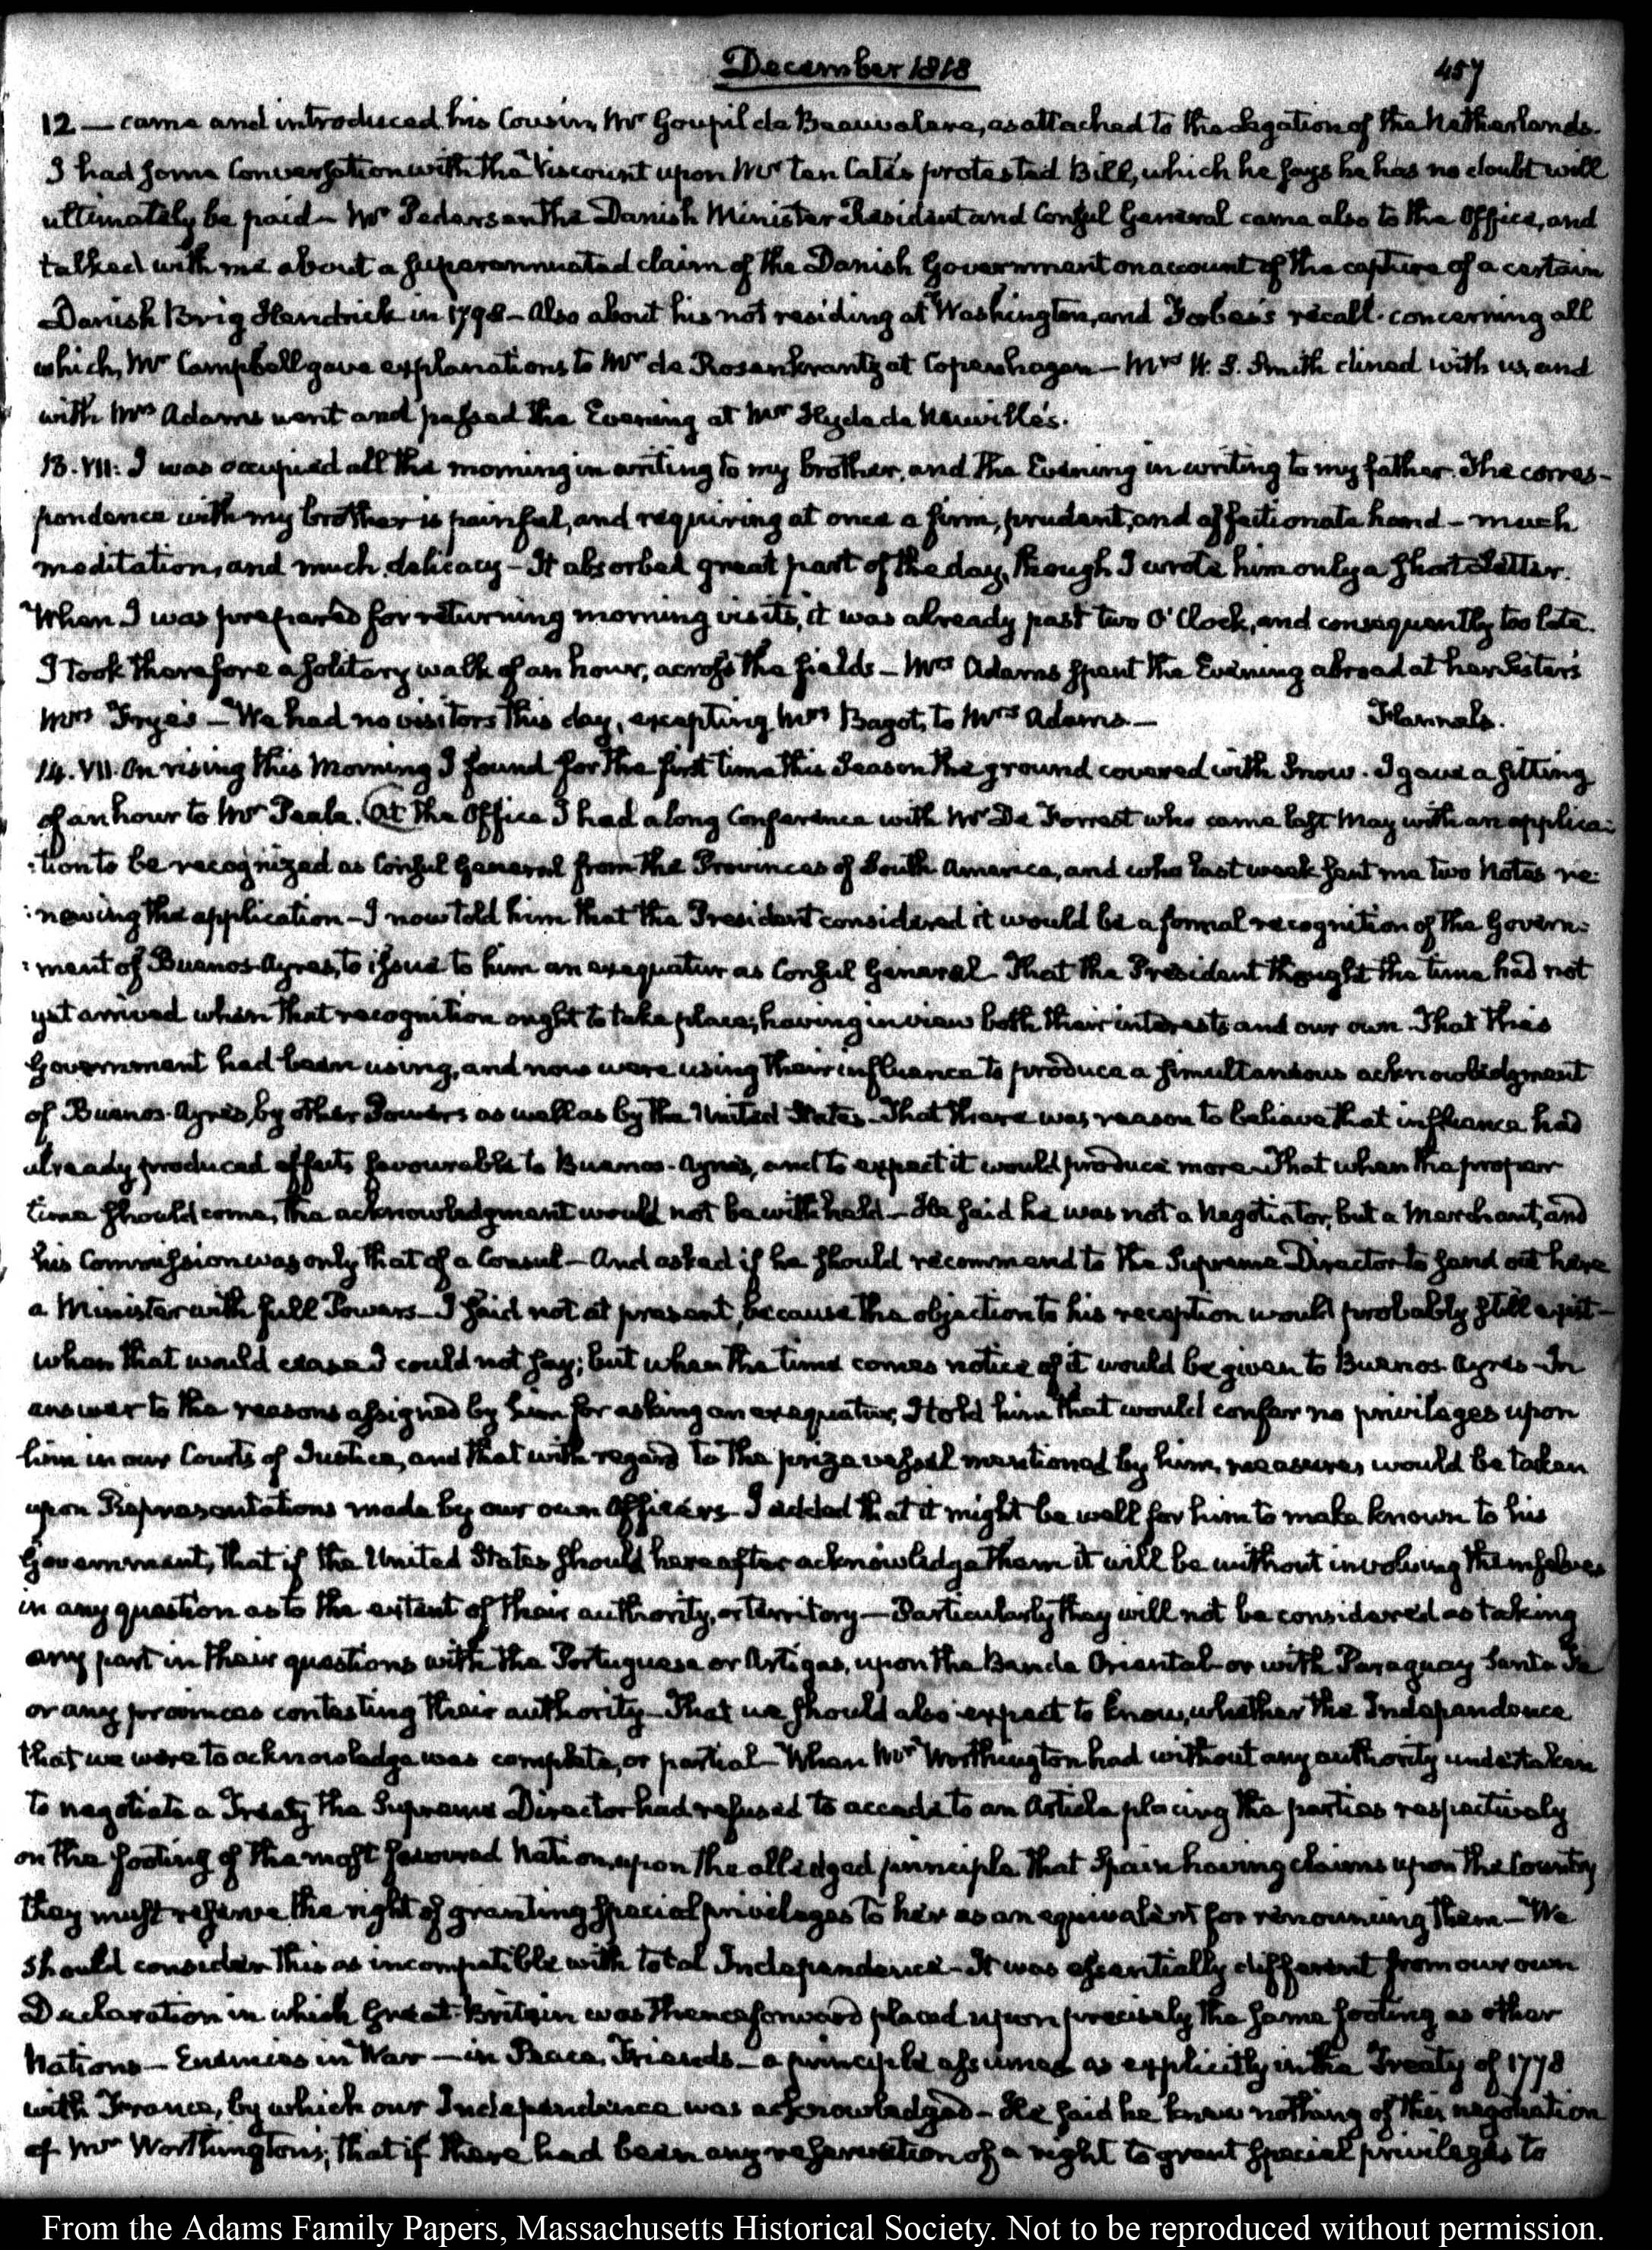 December 1818
457
12 — came and introduced his Cousin, Mr Goupil de Beauvalere, as attached to the Legation of the Netherlands.
I had some Conversation with the Viscount upon Mr Ten Cate's protested Bill, which he says he has no doubt will
ultimately be paid — Mr Pedersen the Danish Minister Resident and Consul General came also to the Office, and
talked with me about a superannuated claim of the Danish Government on account of the capture of a certain
Danish Brig Hendrick in 1798 — Also about his not residing at Washington, and Forbes's recall. concerning all
which, Mr Campbell gave explanations to Mr de Rosenkrantz at Copenhagen — Mrs W. S. Smith dined with us, and
with Mrs Adams went and passed the Evening at Mr Hyde de Neuville's.
13. VII: I was occupied all the morning in writing to my brother, and the Evening in writing to my father. The corres-
pondence with my brother is painful, and requiring at once a firm, prudent, and affectionate hand — much
meditation, and much delicacy — It absorbed great part of the day, though I wrote him only a short Letter.
When I was prepared for returning morning visits, it was already past two O'Clock, and consequently too late.
I took therefore a solitary walk of an hour, across the fields — Mrs Adams spent the Evening abroad at her Sister's
Mrs Frye's — We had no visitors this day, excepting Mrs Bagot, to Mrs Adams —
Flannels.
14. VII. On rising this Morning I found for the first time this Season the ground covered with Snow. I gave a sitting
of an hour to Mr Peale. At the Office I had a long Conference with Mr De Forrest who came last May with an applica:
:tion to be recognized as Consul General from the Provinces of South America, and who last week sent me two Notes re:
:newing the application — I now told him that the President considered it would be a formal recognition of the Govern:
:ment of Buenos-Ayres, to issue to him an exequatur as Consul General — That the President thought the time had not
yet arrived when that recognition ought to take place; having in view both their interests and our own. That this
Government had been using, and now were using their influence to produce a simultaneous acknowledgment
of Buenos-Ayres, by other Powers as well as by the United States — That there was reason to believe that influence had
already produced effects favourable to Buenos-Ayres, and to expect it would produce more — That when the proper
time should come, the acknowledgment would not be withheld — He said he was not a Negotiator, but a Merchant, and
his Commission was only that of a Consul — And asked if he should recommend to the Supreme Director to send out here
a Minister with full Powers — I said not at present, because the objection to his reception would probably still exist —
when that would cease I could not say; but when the time comes notice of it would be given to Buenos-Ayres — In
answer to the reasons assigned by him for asking an exequatur, I told him that would confer no privileges upon
him in our Courts of Justice, and that with regard to the prize vessel mentioned by him, measures would be taken
upon Representations made by our own Officers — I added that it might be well for him to make known to his
Government, that if the United States should hereafter acknowledge them it will be without involving themselves
in any question as to the extent of their authority, or territory — Particularly they will not be considered as taking
any part in their questions with the Portuguese or Artigas, upon the Banda Oriental or with Paraguay Santa Fe
or any provinces contesting their authority — That we should also expect to know, whether the Independence
that we were to acknowledge was complete, or partial — When Mr Worthington had without any authority undertaken
to negotiate a Treaty the Supreme Director had refused to accede to an Article placing the parties respectively
on the footing of the most favoured Nation, upon the alledged principle that Spain having claims upon the Country
they must reserve the right of granting special privileges to her as an equivalent for renouncing them — We
should consider this as incompatible with total Independence — It was essentially different from our own
Declaration in which Great-Britain was thenceforward placed upon precisely the same footing as other
Nations — Enemies in War — in Peace, Friends — a principle assumed as explicitly in the Treaty of 1778
with France, by which our Independence was acknowledged — He said he knew nothing of this negotiation
of Mr Worthington's; that if there had been any reservation of a right to grant special privileges to
From the Adams Family Papers, Massachusetts Historical Society. Not to be reproduced without permission.